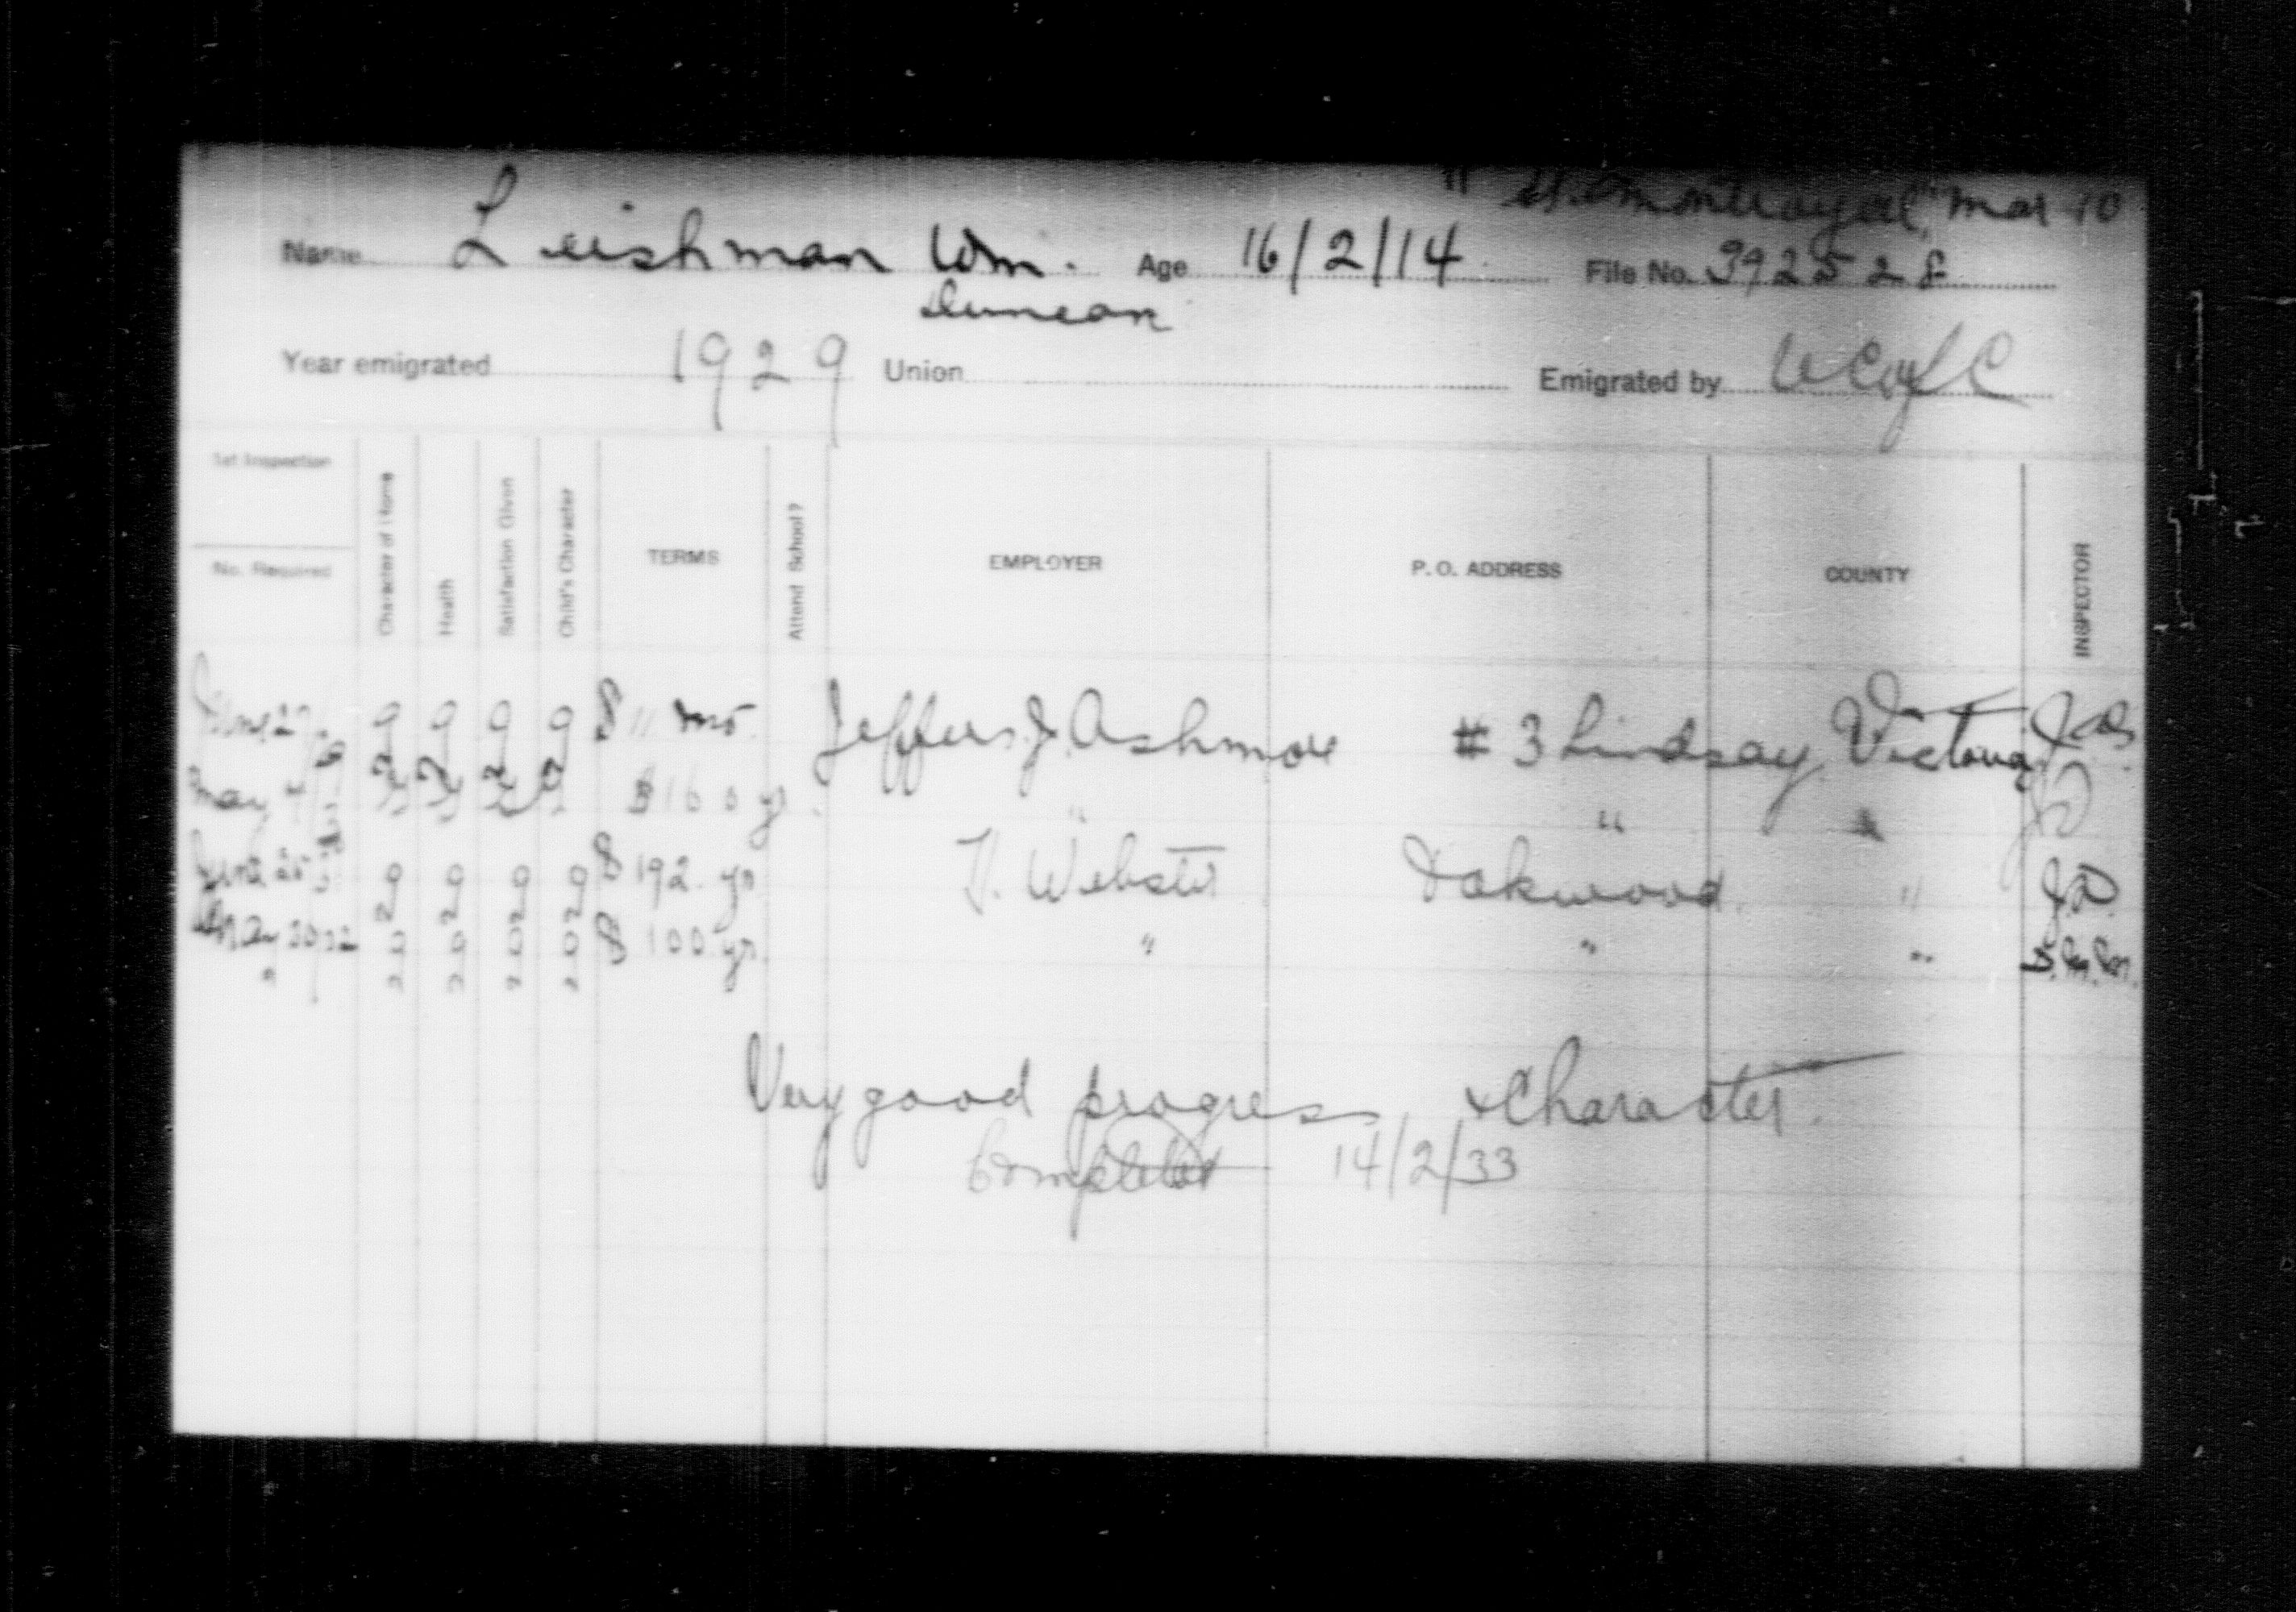 "Montroyal" Mar 10
Name Leishman Wm. Age 16/2/14 File No. 392528
Duncan
Year emigrated 1929 Union Emigrated by
1st Inspection
No. Required
Character of Home
Health
Satisfaction Given
Child's Character
TERMS
Attend School?
EMPLOYER
P. O. ADDRESS
COUNTY
INSPECTOR
g g g g $ 11 mo. Jeffers J. Ashmore # 3 Lindsay Victoria
May $160 yr " " "
June 25 g g g g $192 yr Webster Oakwood "
May 30 32 $ 100 yr " " "
Very good progress & Character.
Completed 14/2/33